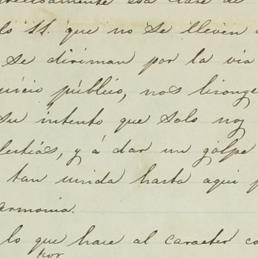 esa clase de
lo SS. que no se lleven
se diriman por la via
juicio público, nos lisonge
su intento que solo noy
lestiás, y á dar un golpe
tan unida hasta aqui p
armonia.
lo que hace al caracter co
por